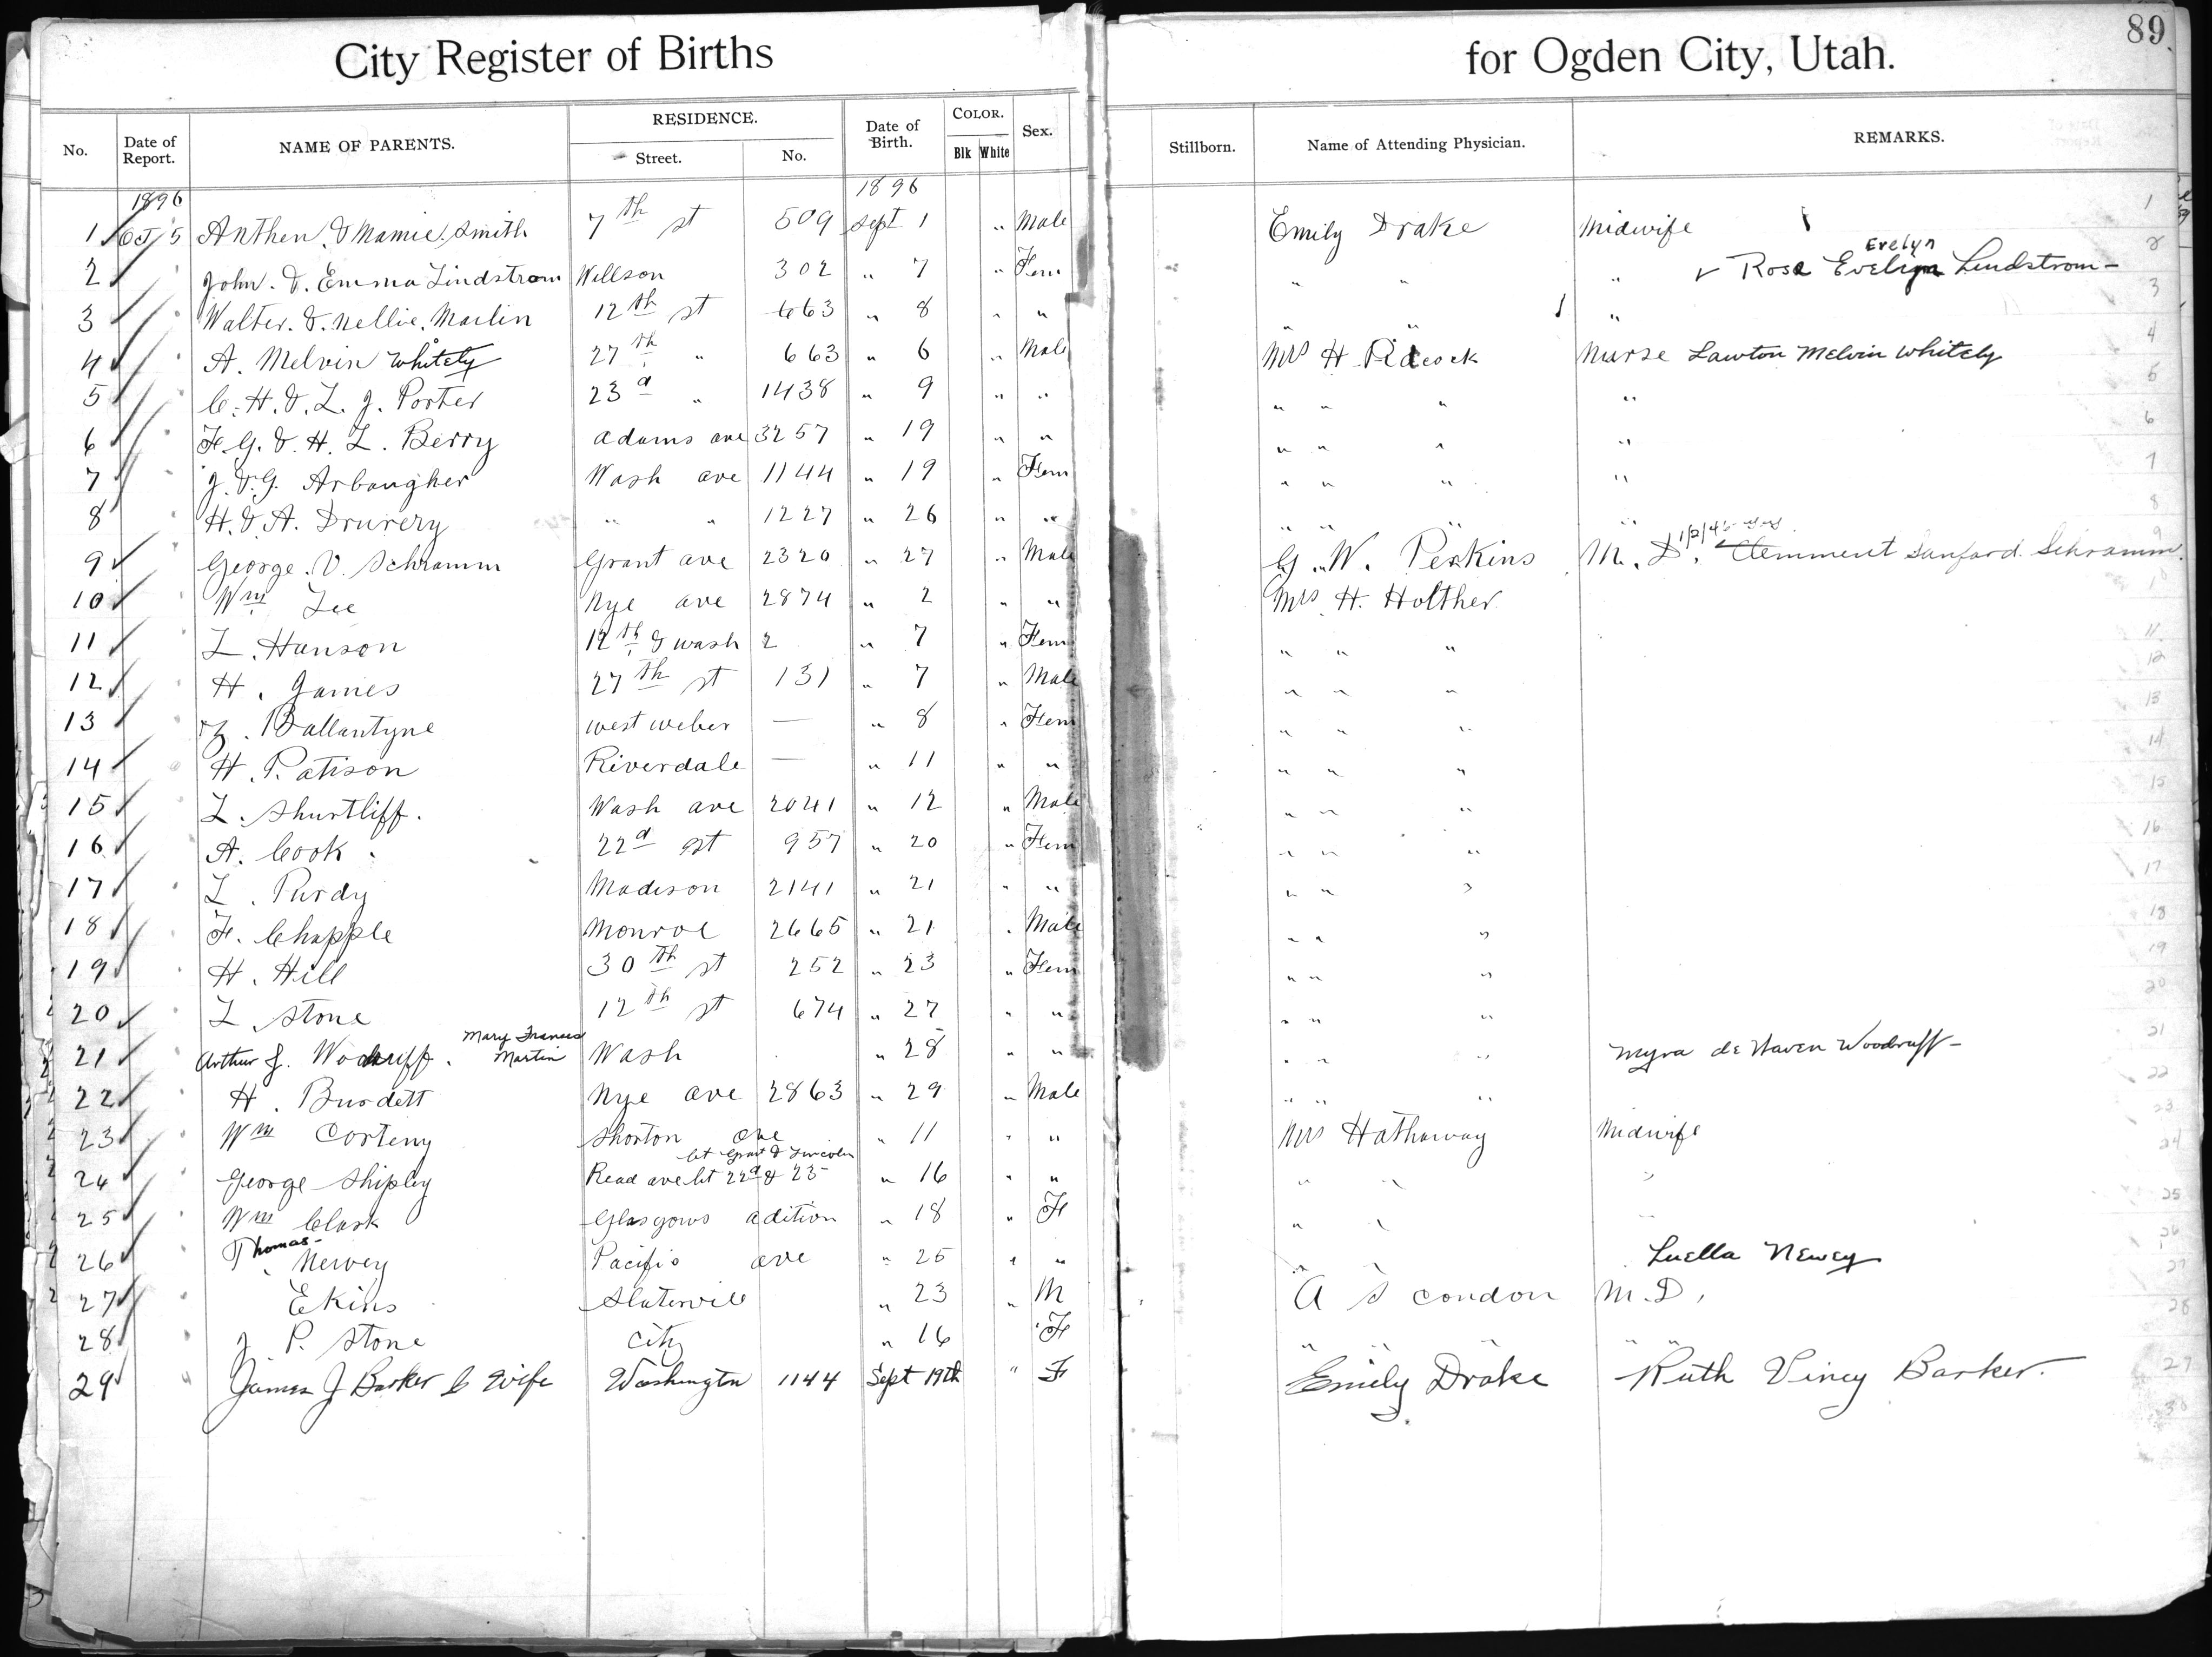 City Register of Births for Ogden City, Utah. 89
No. Date of Report. NAME OF PARENTS. RESIDENCE. Street. No. Date of Birth. COLOR. Blk White Sex. Stillborn. Name of Attending Physician. REMARKS.
1896 1896
1 Oct 5 Anthen & Mamie Smith 7th st 509 Sept 1 " Male Emily Drake Midwife 1
Evelyn
2 John & Emma Lindstrom Willson 302 " 7 " Fem " " " Rose Evelyn Lindstrom- 2
3 Walter & Nellie Marlin 12th st 663 " 8 " " " " " 3
4 A. Melvin Whitely 27th " 663 " 6 " Male Mrs H Nurse Lawton Melvin Whitely 4
5 C. H. & L. J. Porter 23d " 1438 " 9 " " " " " " 5
6 F. G. & H. L. Berry Adams ave 3257 " 19 " " " " " " 6
7 J. & G. Arbaugher Wash ave 1144 " 19 " Fem " " " " 7
8 H. & A. Drurery " " 1227 " 26 " " " " " " 8
9 George. V. Schramm Grant ave 2320 " 27 " Male G. W. Perkins M. D. Clemment Sanford Schramm. 9
10 Wm Lee Nye ave 2874 " 2 " " Mrs H. Holther 10
11 L. Hanson 12th & Wash 2 " 7 " Fem " " " 11
12 H. James 27th st 131 " 7 " Male " " " 12
13 Z. Ballantyne West Weber — " 8 " Fem " " " 13
14 H. Patison Riverdale — " 11 " " " " " 14
15 L. Shurtliff. Wash ave 2041 " 12 " Male " " " 15
16 A. Cook 22d st 957 " 20 " Fem " " " 16
17 L. Purdy Madison 2141 " 21 " " " " " 17
18 F. Chapple Monroe 2665 " 21 " Male " " " 18
19 H. Hill 30th st 252 " 23 " Fem " " " 19
20 L Stone 12th st 674 " 27 " " " " " 20
Mary Frances
21 Arthur J. Woodruff. Martin Wash " 28 " " " " " Myra de Haven Woodruff- 21
22 H. Burdett Nye ave 2863 " 29 " Male " " " 22
23 Wm Corteny Shorton ave " 11 " " Mrs Hathaway Midwife 23
bet Grant & Lincoln
24 George Shipley Read ave bet 22d & 23 " 16 " " " " " 24
25 Wm Clark Glasgows adition " 18 " F " " " 25
26 Thomas Newey Pacific ave " 25 " " " Luella Newey 26
27 Ekins Slaterville " 23 " M A S Condon M. D. 27
28 J P. Stone City " 16 " F " " " " 28
29 James J Barker & Wife Washington 1144 Sept 19th " F Emily Drake Ruth Viney Barker. 29
30